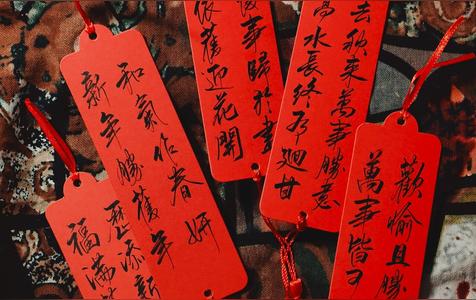 和氣作春妍
新年勝舊年
歷添新
福滿
事歸於
舊迎花開
去秋來萬事勝意
高水長終有迴甘
歡愉且勝
萬事皆